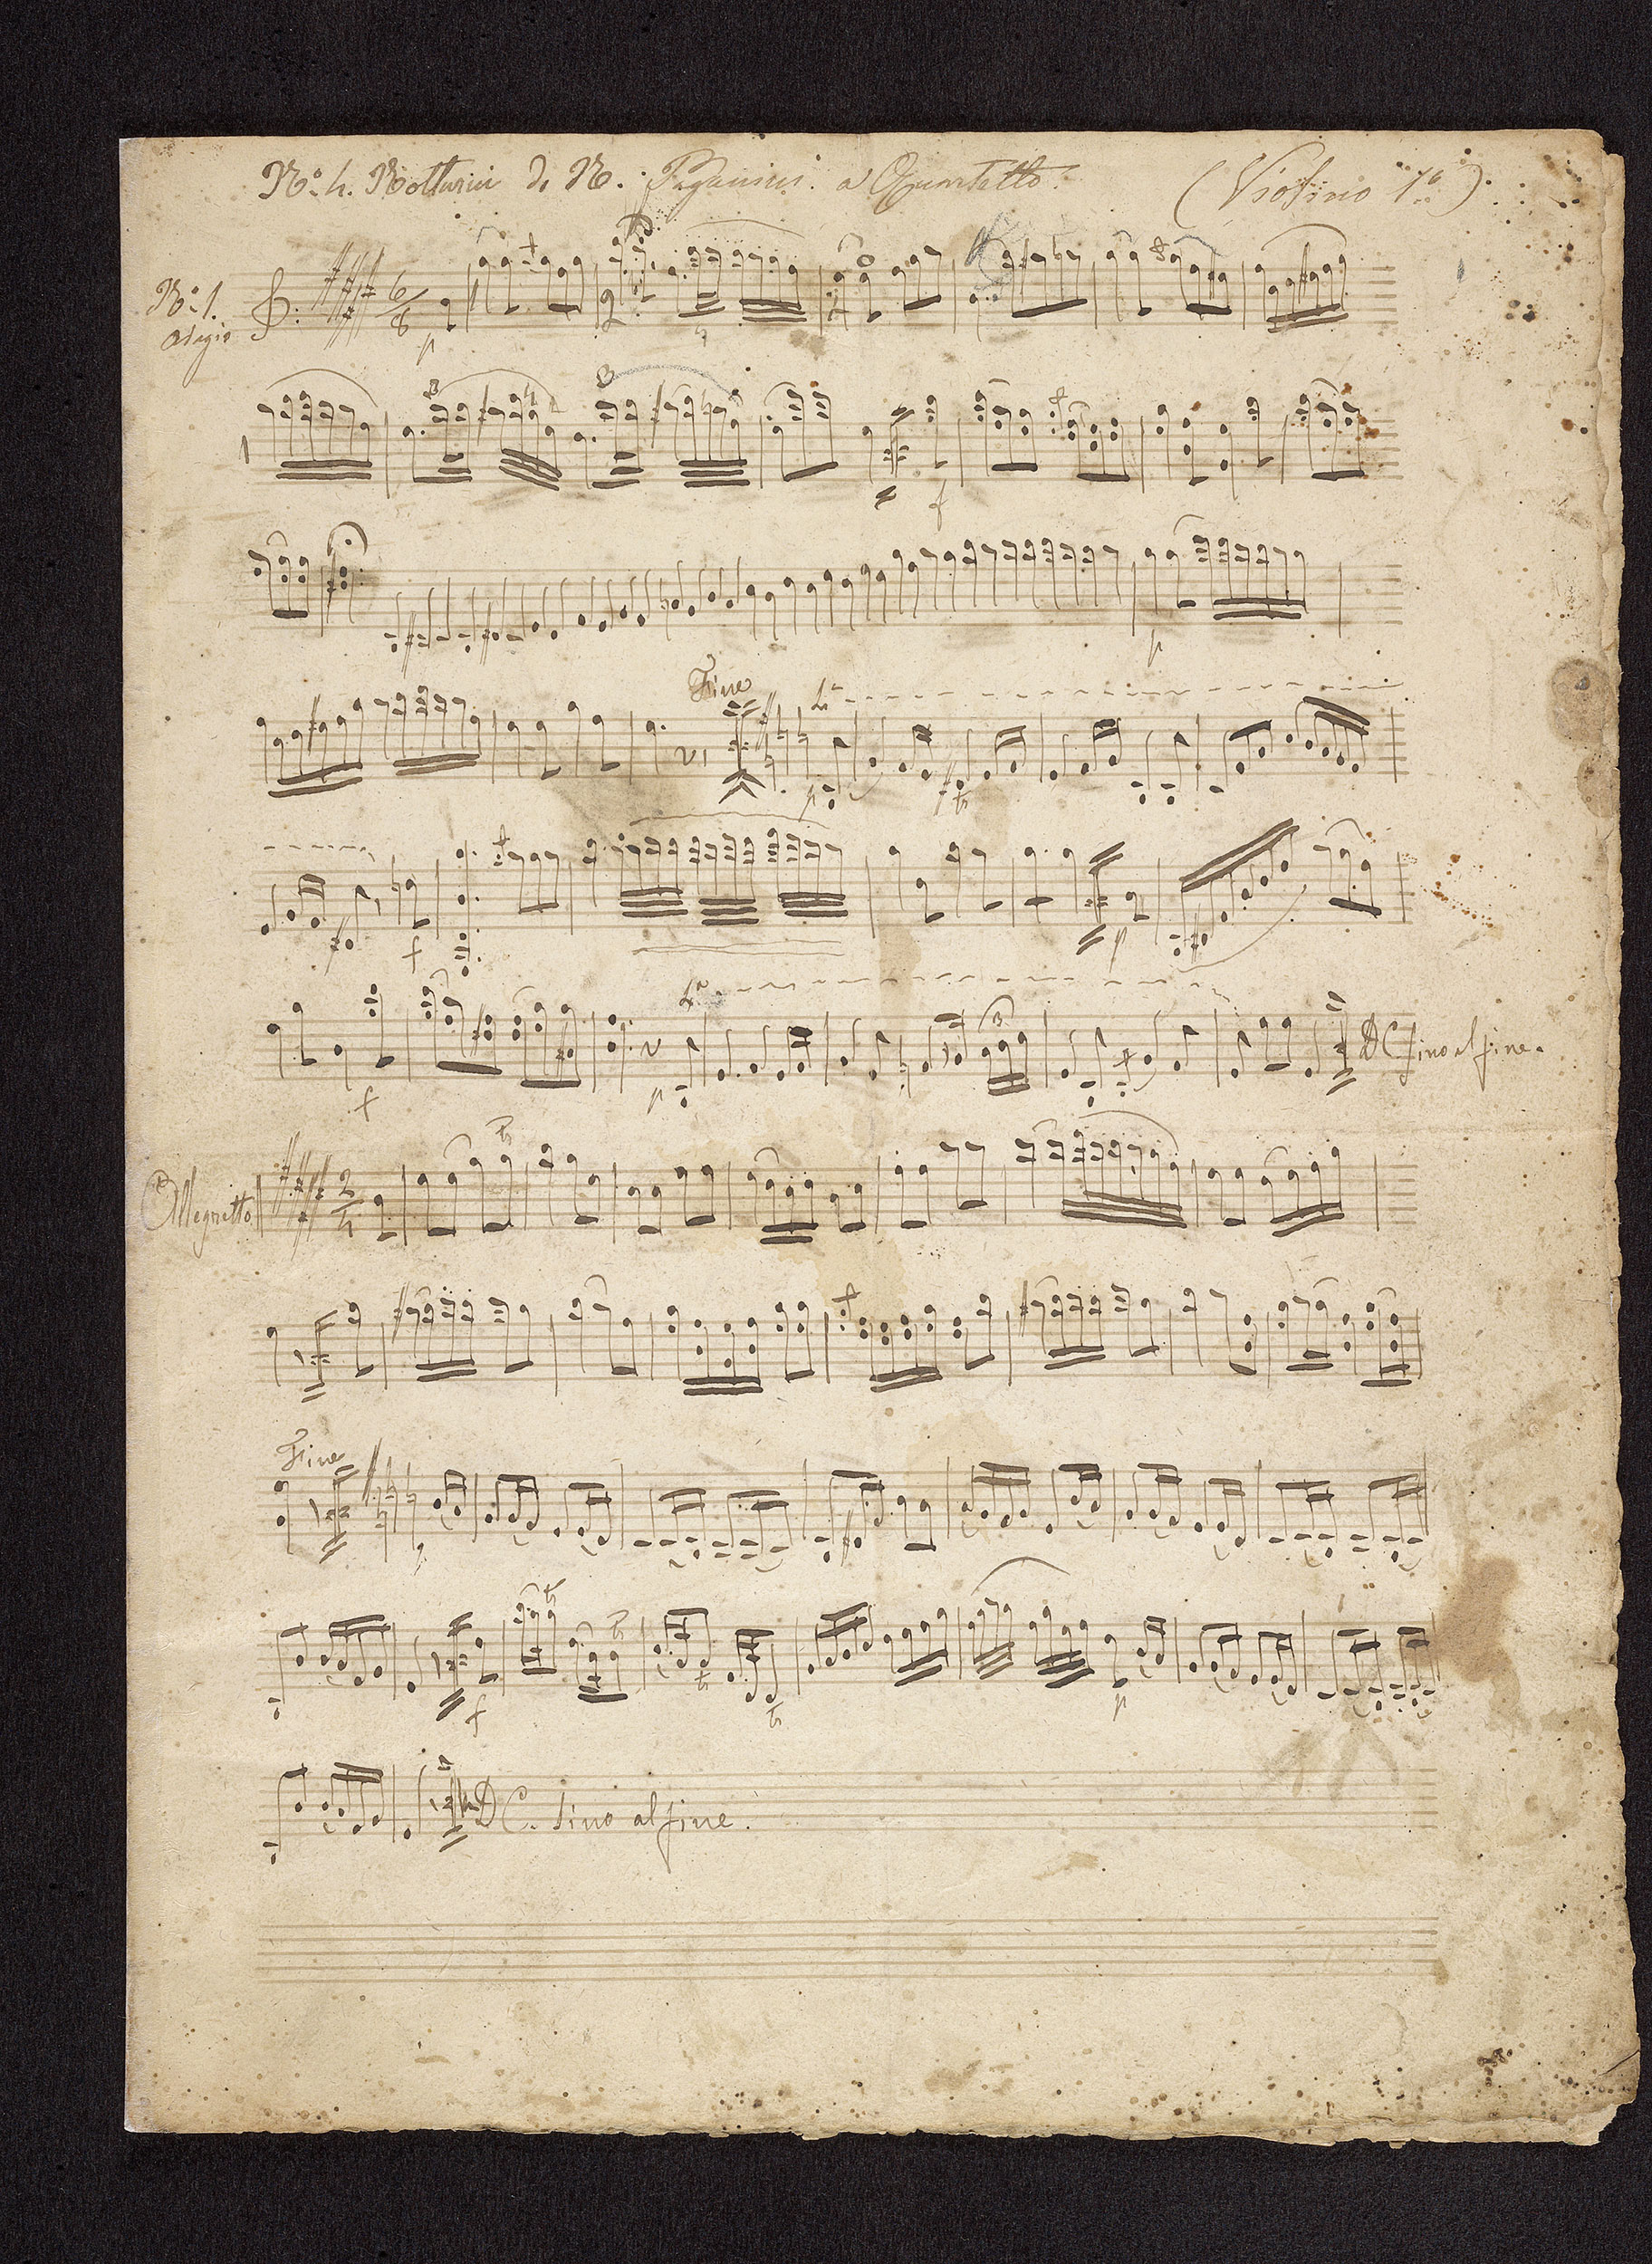 No. 4. Notturni di N. Paganini. a Quartetto. (Violino 1o.)
No. 1.
Adagio
6/8
p
3 3
1
f
p
Fine
4a
p
f
p
4a
3
f
p
DC fino al fine.
Allegretto
2/4
tr
Fine
tr
f
p
DC. fino al fine.